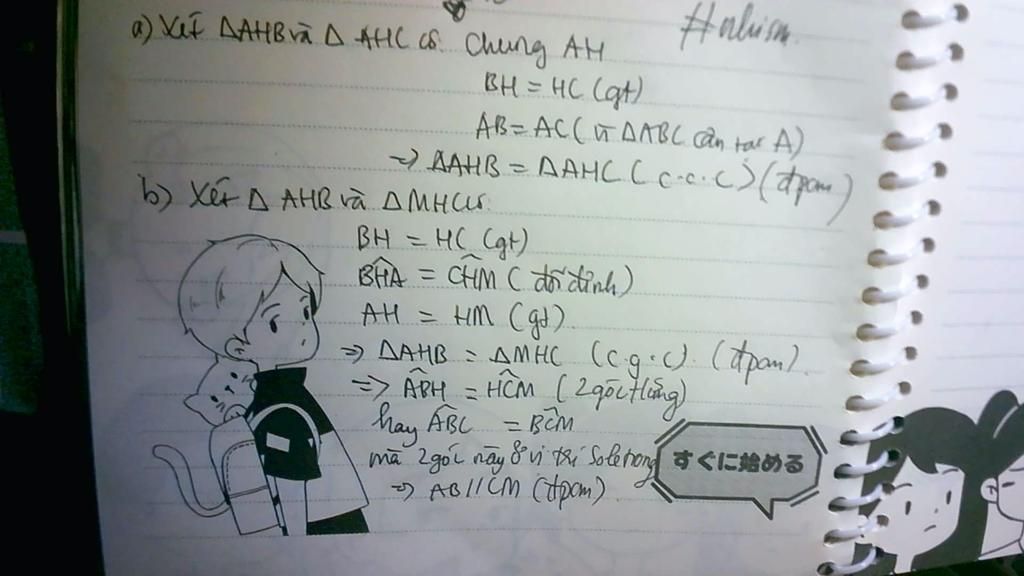 a) Xét ΔAHB và Δ AHC có. Chung AH
BH = HC (gt)
AB = AC (vì ΔABC cân tại A)
=> ΔAHB = ΔAHC (c.c.c) (đpcm)
b) Xét Δ AHB và ΔMHC có.
BH = HC (gt)
BĤA = CĤM (đối đỉnh)
AH = HM (gt).
=> ΔAHB = ΔMHC (c.g.c). (đpcm).
=> AB̂H = HĈM (2 góc tương ứng)
hay AB̂C = BĈM
mà 2 góc này ở vị trí So le trong
=> AB // CM (đpcm).
すぐに始める